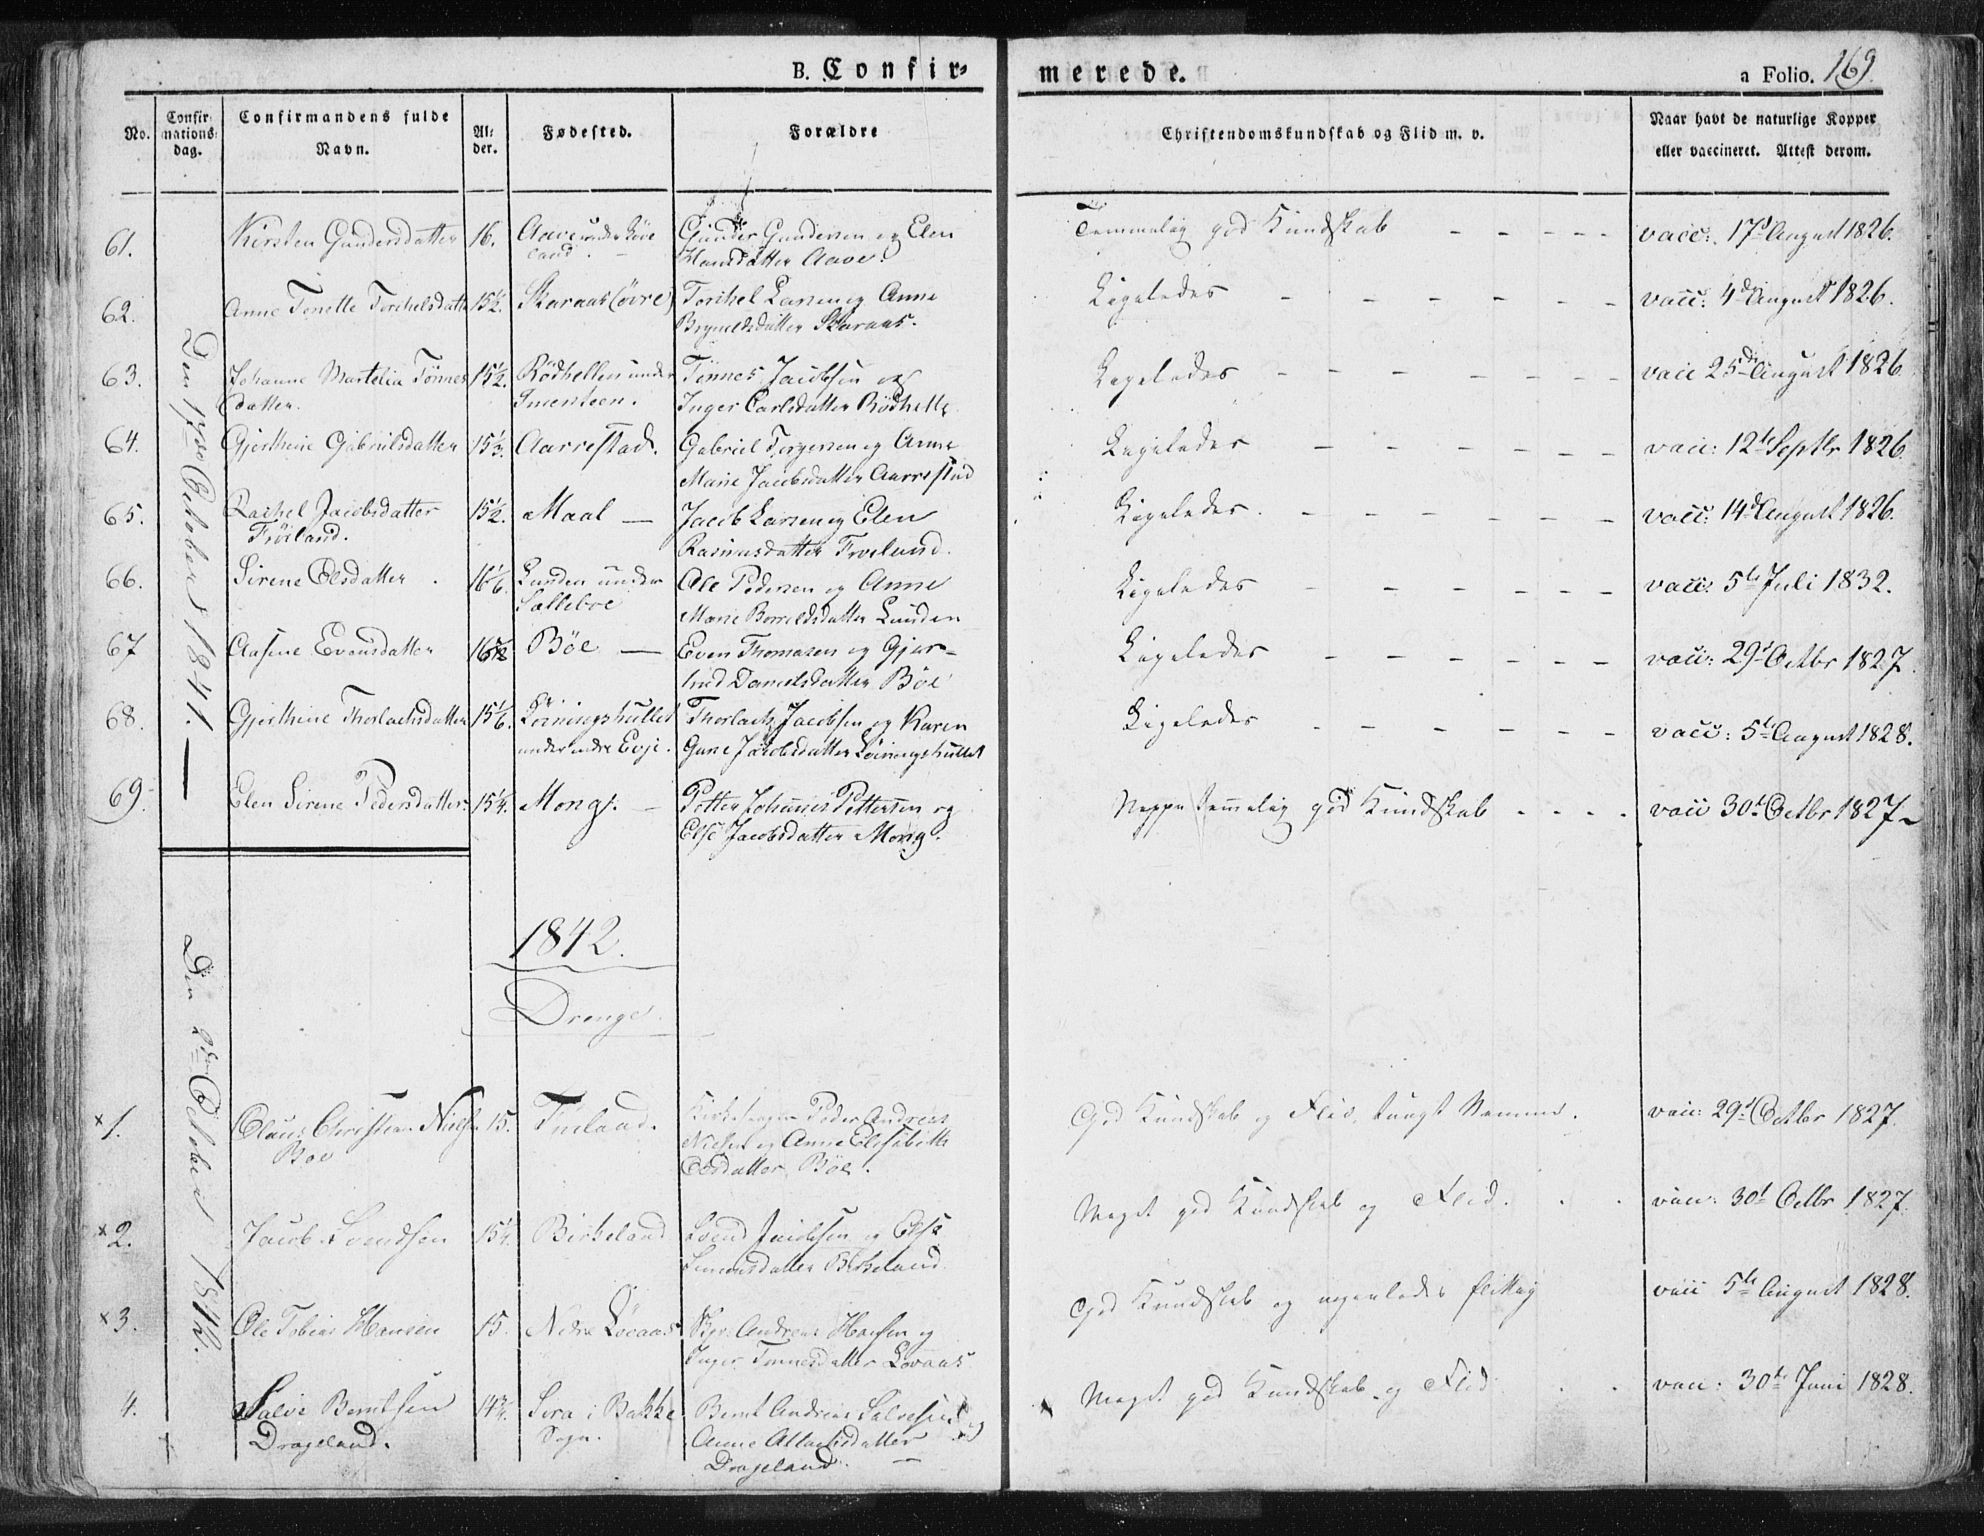 B. Confir-
merede.
a Folio. 169
No.
Confirmations-dag.
Confirmandens fulde Navn.
Alder.
Fødested.
Forældre
Christendomskundskab og Flid m. v.
Naar havt de naturlige Kopper eller vaccineret. Attest derom.
Den 17de October 1841.
61. Kirsten Gundersdatter 16. Aave under Gunder Gundersen og Elen Temmelig god Kundskab - - - - - vacc: 17d August 1826.
land. Hansdatter Aave.
62. Anne Tonette Torchelsdatter 15½. Skaraas (øvre) Torchel Larsen og Anne Ligeledes - - - - - - vacc: 4de August 1826.
Brynildsdatter Skaraas.
63. Johanne Martelia Tønnes 15½. Rödhellen under Tönnes Jacobsen og Ligeledes - - - - - - vacc 25de August 1826
datter. Inger Carlsdatter Rödhelle
64. Gjerthine Gabrielsdatter 15½. Aarrestad. Gabriel Torgersen og Anne Ligeledes - - - - - - vacc: 12te Septbr 1826.
Marie Jacobsdatter Aarrestad
65. Rachel Jacobsdatter 15½. Maal — Jacob Larsen og Elen Ligeledes. - - - - - - vacc: 14d August 1826.
Fröiland. Rasmusdatter Froeland.
66. Sirene Olsdatter. 16 1/6. Lunden under Ole Pedersen og Anne Ligeledes - - - - - - vacc: 5te Juli 1832.
Salleboe Marie Bornildsdatter Lunden
67 Aasine Evensdatter 16½ Böe — Even Thomasen og Gjer- Ligeledes - - - - - - vacc: 29d Octbr 1827.
trud Danielsdatter Böe
68. Gjerthine Thorlachsdatter 15 1/6. Löiningshullet Thorlach Jacobsen og Karen Ligeledes - - - - - - vacc: 5te August 1828.
under indre Evje. Gune Jacobsdatter Löiningshullet
69. Elen Sirene Pedersdatter 15¼. Mong. — Petter Johannes Pettersen og Neppe temmelig god Kundskab - - - - vacc 30d Octbr 1827
Else Jacobsdatter Mong.
1842.
Drenge.
Den 2den October 1842.
x1. Claus Christian Nielsen 15. Peder Andreas God Kundskab og Flid, tungt Nemme. vacc: 29d Octbr 1827.
Boe Nielsen og Anne Elisabeth
Olsdatter Böe.
x2. Jacob Svendsen 15¼. Birkeland Svend Jacobsen og Else Meget god Kundskab og Flid. vacc: 30d Octbr 1827.
Simonsdatter Birkeland
x3. Ole Tobias Hansen 15. Nedre Lövaas Andreas Hansen og God Kundskab og flittig vacc 5te August 1828.
Inger Tønnesdatter Lövaas
4. Salve Berntsen 14¾. Sira i Bakke Bernt Andreas Salvesen og Meget god Kundskab og Flid vacc: 30te Juni 1828.
Drageland. Sogn. Anne Atlaksdatter
Drageland.